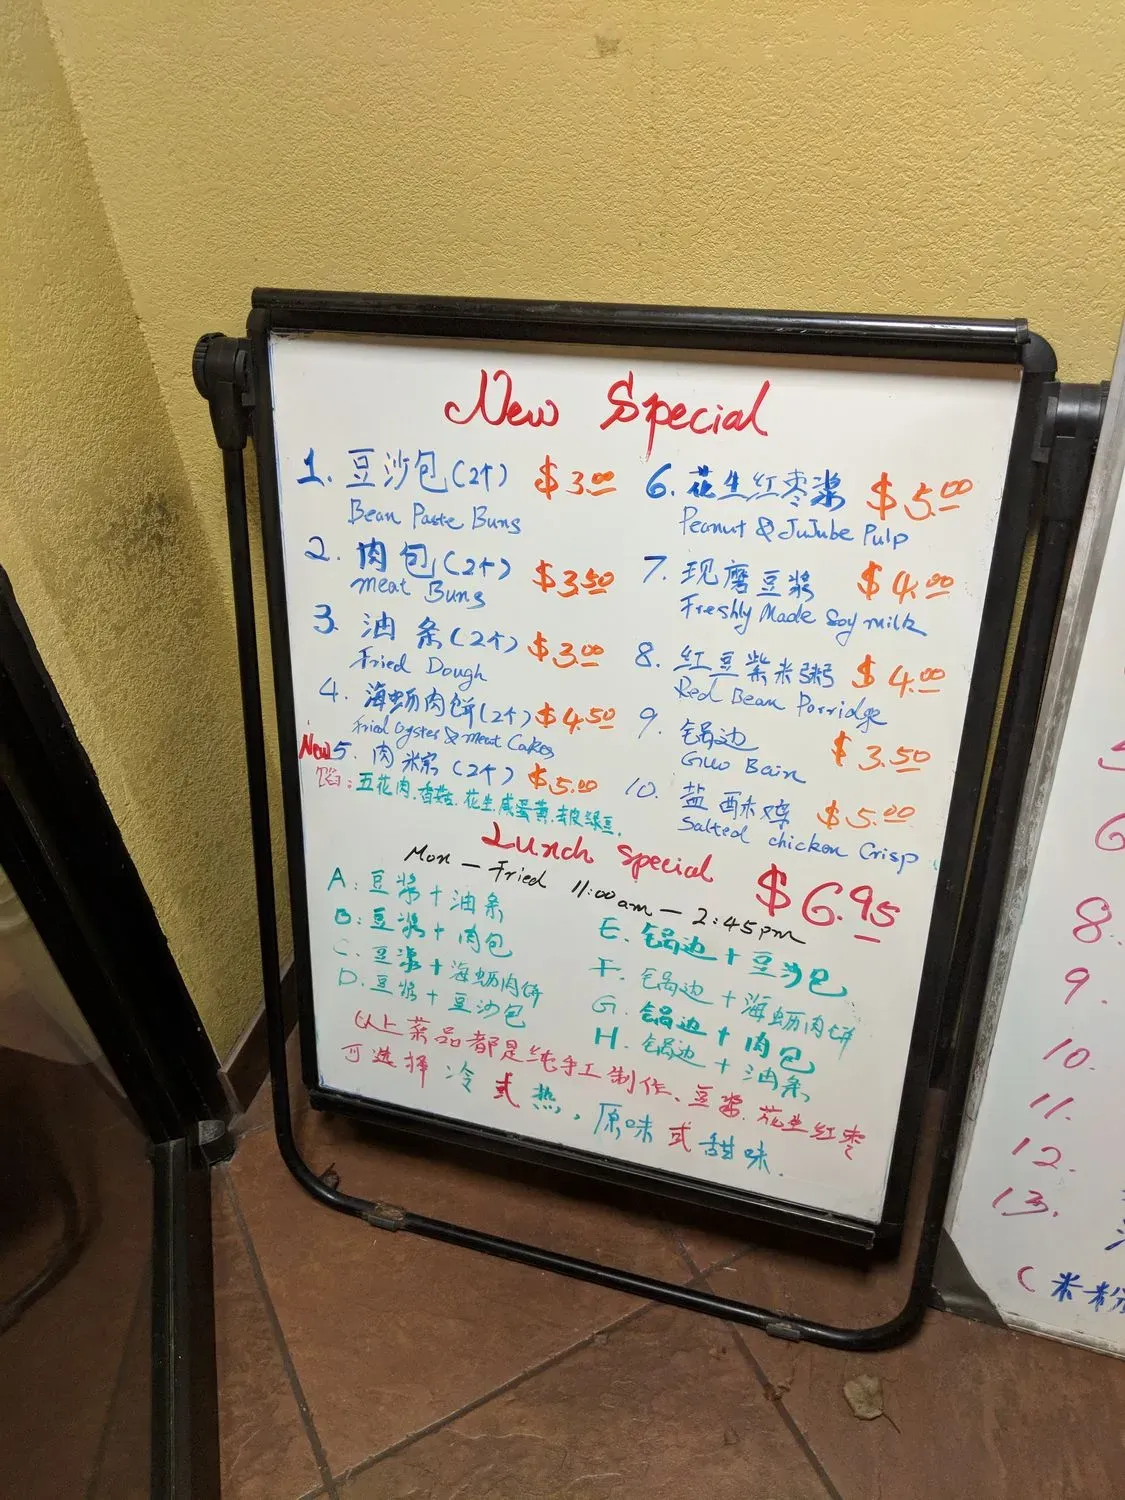 New Special
1. 豆沙包(2个) $3.00
Bean Paste Buns
2. 肉包(2个) $3.50
meat Buns
3. 油条(2个) $3.00
Fried Dough
4. 海蛎肉饼(2个) $4.50
Fried Oyster & meat Cakes
New 5. 肉粽(2个) $5.00
馅:五花肉.香菇.花生.咸蛋黄.去皮绿豆.
6. 花生红枣浆 $5.00
Peanut & JuJube Pulp
7. 现磨豆浆 $4.00
Freshly Made Soy milk
8. 红豆紫米粥 $4.00
Red Bean Porridge
9. 锅边 $3.50
Guo Bain
10. 盐酥鸡 $5.00
Salted chicken Crisp
Lunch Special $6.95
Mon - Fried 11:00am - 2:45pm
A. 豆浆+油条
B. 豆浆+肉包
C. 豆浆+海蛎肉饼
D. 豆浆+豆沙包
E. 锅边+豆沙包
F. 锅边+海蛎肉饼
G. 锅边+肉包
H. 锅边+油条
以上菜品都是纯手工制作、豆浆.花生红枣
可选择冷或热,原味或甜味.
8.
9.
10.
11.
12.
13.
(米粉